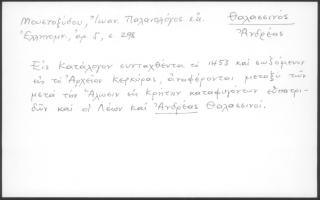 Μουστοξύδου, Ἰωάν. Παλαιολόγος ἐν
Ἑλληνομν., ἀρ. 5, σ. 298
Θαλασσινός
Ἀνδρέας
Εἰς Κατάλογον συνταχθέντα τὸ 1453 καὶ σωζόμενον
εἰς τὸ Ἀρχεῖον Κερκύρας, ἀναφέρονται μεταξὺ τῶν
μετὰ τὴν Ἅλωσιν εἰς Κρήτην καταφυγόντων εὐπατρι-
δῶν καὶ οἱ Λέων καὶ Ἀνδρέας Θαλασσινοί.